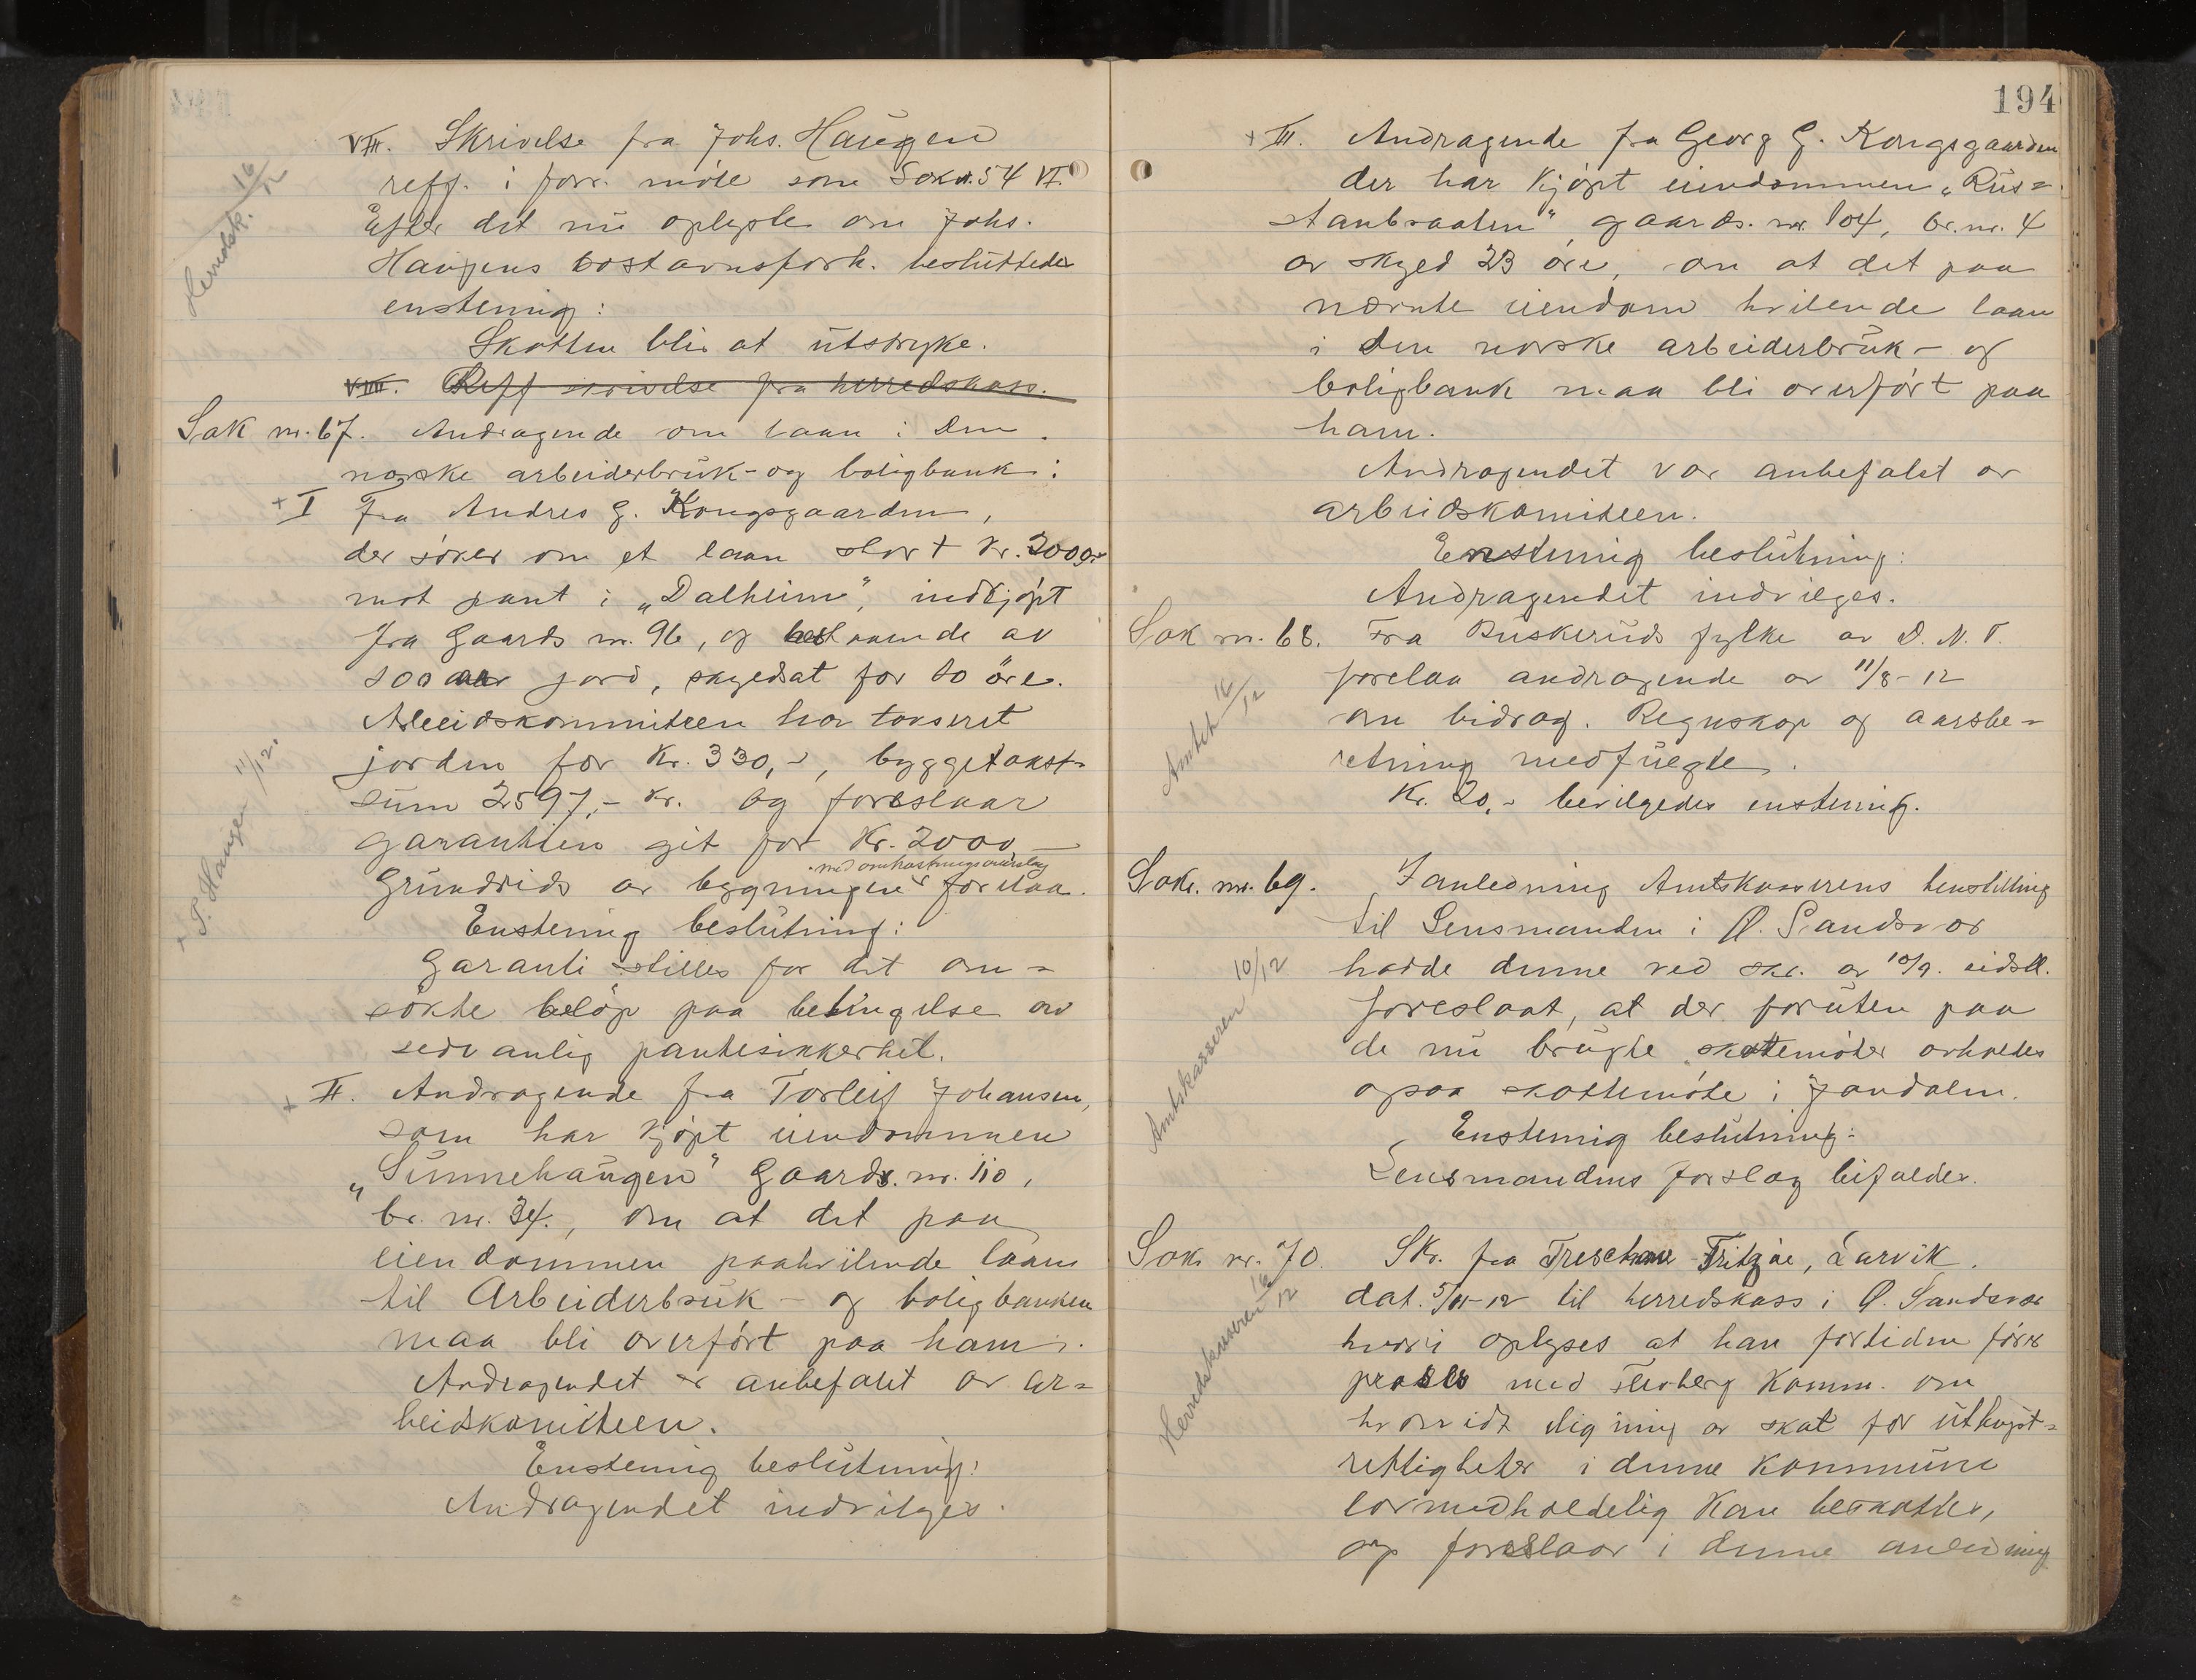 VII. Skrivelse fra Johs. Haugen
reff. i forr. møte som Sak n. 54 VI.
Efter det nu oplyste om Johs.
Haugens bostavnsforh. besluttedes
enstemig:
Skatten blir at utstryke.
VIII. Reff skrivelse fra herredskass.
Herredsk. 16/12
Sak nr. 67. Andragende om laan i Den
norske arbeiderbruk- og boligbank:
+ I Fra Andres G. Kongsgaarden,
der søker om et laan stort kr. 2000,-
mot pant i „Dalheim", indkjøpt
fra Gaards nr. 96, og bestaaende av
500 aar jord, skyldsat for 10 øre.
Arbeidskommiteen har taxseret
jorden for Kr. 330,-, byggetakst-
sum 2597,- kr. og foreslaar
garantien git for Kr. 2000,-
Grundrids av bygningen med omkostningsoverslag forelaa.
P. Haugen 11/12.
Enstemig beslutning:
Garanti stilles for det om-
søkte beløp paa betingelse av
sedvanlig pantesikkerhet.
+ II. Andragende fra Torleif Johansen,
som har kjøpt eiendommen
„Sunnehaugen" Gaards. nr. 110,
br. nr. 34., om at det paa
eiendommen paahvilende laan
til Arbeiderbruk- og boligbanken
maa bli overført paa ham.
Andragendet er anbefalet av ar-
beidskomiteen.
Enstemig beslutning:
Andragendet indvilges.
194
+ III. Andragende fra Georg G. Kongsgaarden
der har kjøpt eiendommen „Rus-
tanbraaten", gaards. nr. 104, br. nr. 4
av skyld 23 øre, om at det paa
nævnte eiendom hvilende laan
i Den norske arbeiderbruk- og
boligbank maa bli overført paa
ham.
Andragendet var anbefalet av
arbeidskomiteen.
Enstemig beslutning:
Andragendet indvilges.
Sak nr. 68. Fra Buskeruds fylke av D. N. T.
forelaa andragende av 11/8-12
om bidrag. Regnskap og aarsbe-
retning medfulgte.
Kr. 20,- bevilgedes enstemig.
Amtet 16/12
Sak. nr. 69. I anledning Amtskasserens henstilling
til Lensmanden i Ø. Sandsvær
hadde denne ved skr. av 10/9. sidstl.
foreslaat, at der foruten paa
de nu brugte skattemøter avholdes
ogsaa skattemøte i Jondalen.
Amtskasseren 10/12
Enstemig beslutning:
Lensmandens forslag bifaldes.
Sak nr. 70. Skr. fra Treschow-Fritzøe, Larvik.
dat. 5/11-12 til herredskass i Ø. Sandsvær
hvori oplyses at han fortiden fører
proces med Flesberg Komm. om
hvorvidt ligning av skat for uthugst-
rettigheter i denne kommune
lovmedholdelig kan beskattes,
og foreslaar i denne anledning
Herredskasseren 16/12